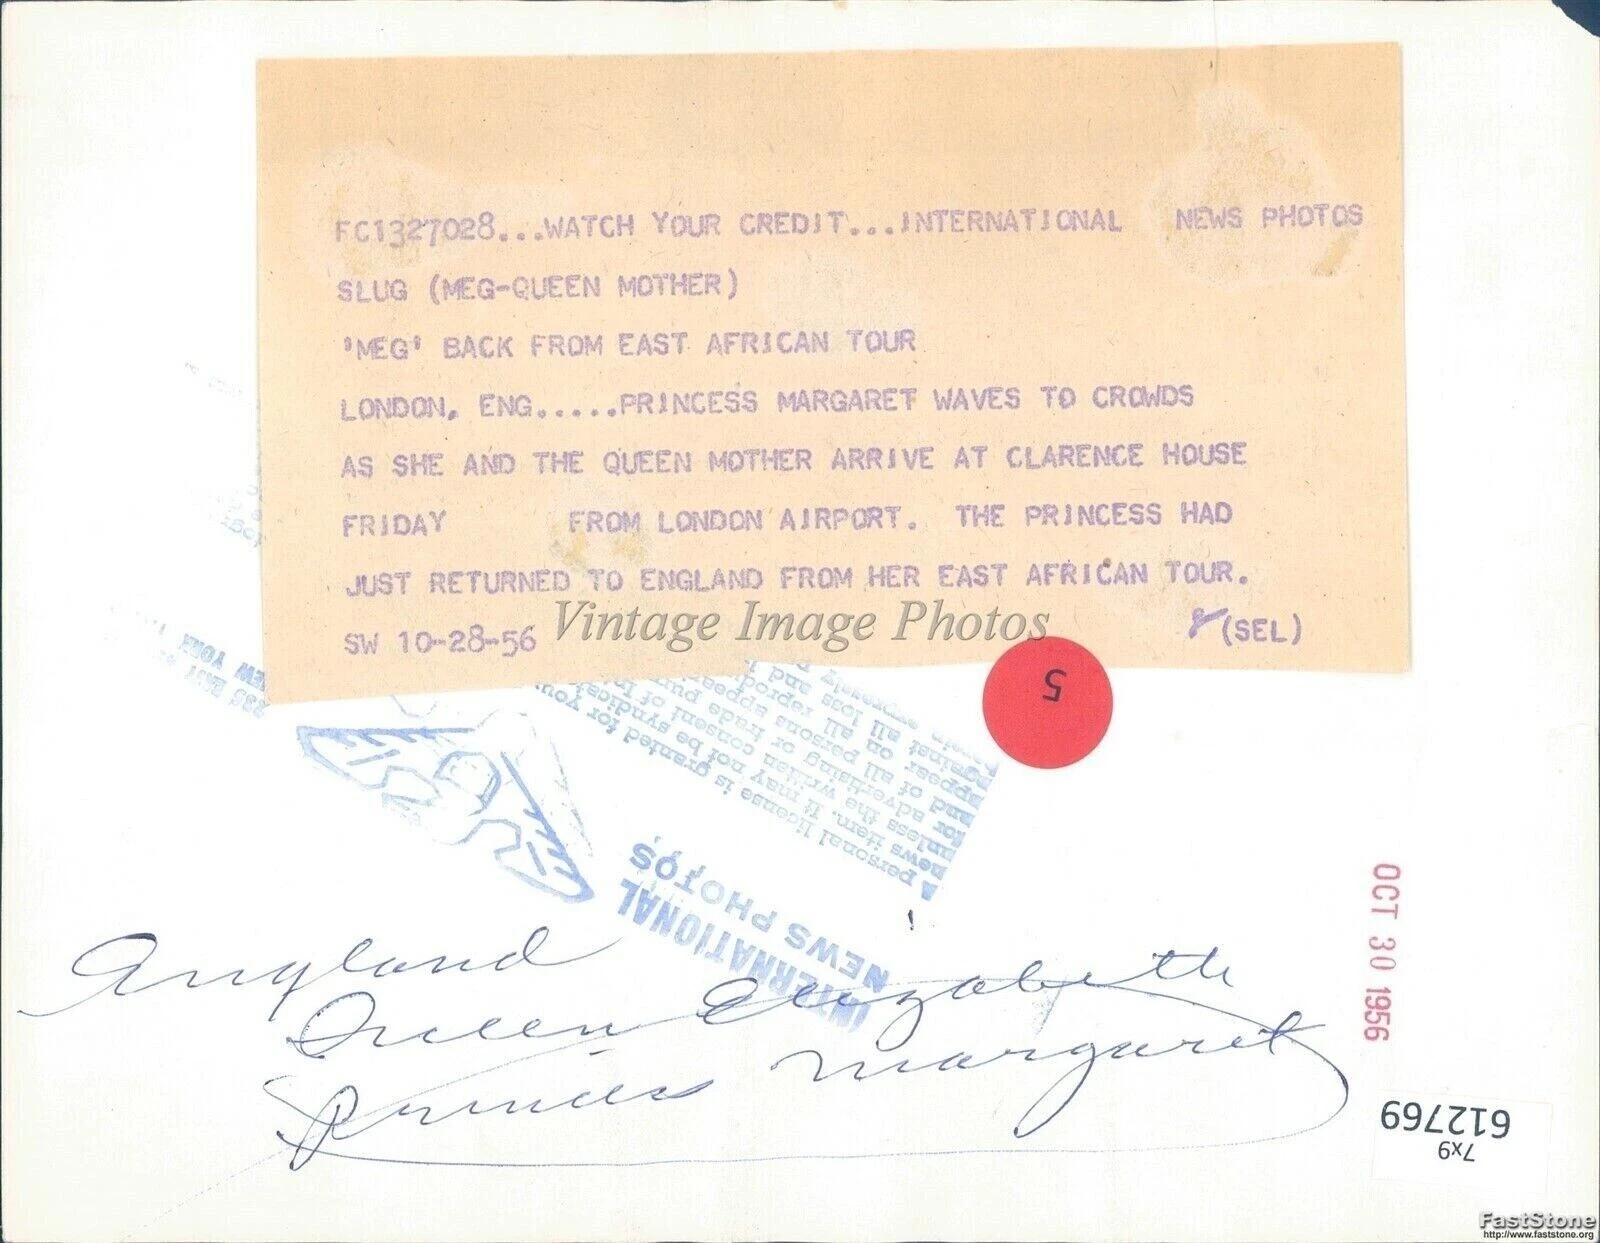 FC1327028...WATCH YOUR CREDIT...INTERNATIONAL NEWS PHOTOS
SLUG (MEG-QUEEN MOTHER)
'MEG' BACK FROM EAST AFRICAN TOUR
LONDON, ENG.....PRINCESS MARGARET WAVES TO CROWDS
AS SHE AND THE QUEEN MOTHER ARRIVE AT CLARENCE HOUSE
FRIDAY FROM LONDON AIRPORT. THE PRINCESS HAD
JUST RETURNED TO ENGLAND FROM HER EAST AFRICAN TOUR.
SW 10-28-56 (SEL)
Vintage Image Photos
5
235 EAST
NEW YORK
INTERNATIONAL
NEWS PHOTOS
A personal license is granted for your
news item. It may not be syndicated
unless the written consent of
advertising or trade
and of all persons
appear on
against all loss and
expressly
England
Queen Elizabeth
Princess Margaret
OCT 30 1956
612769
7x9
FastStone
http://www.faststone.org